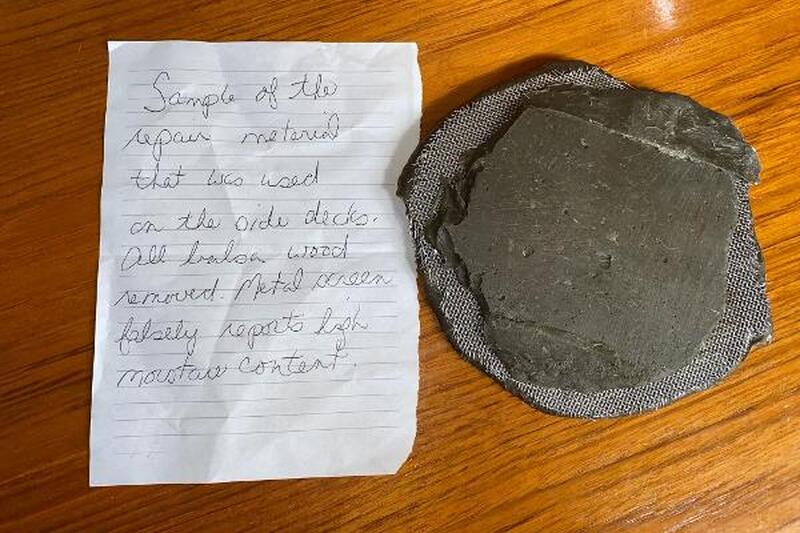 Sample of the
repair material
that was used
on the side decks.
All balsa wood
removed. Metal screen
falsely reports high
moisture content.